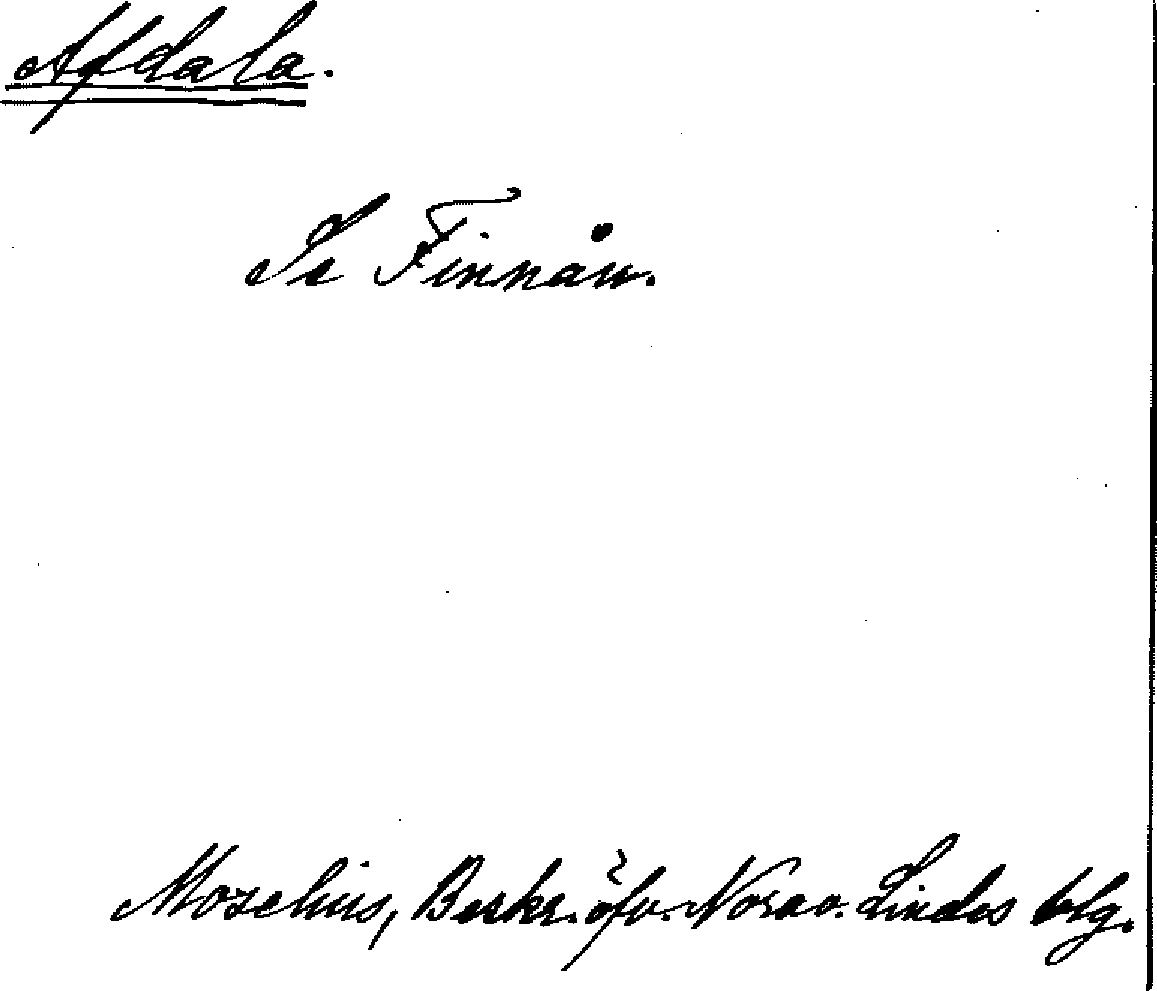 Afdala.
Se Finnån.
Moselius, Beskr. öfv. Nora o. Lindes blg.